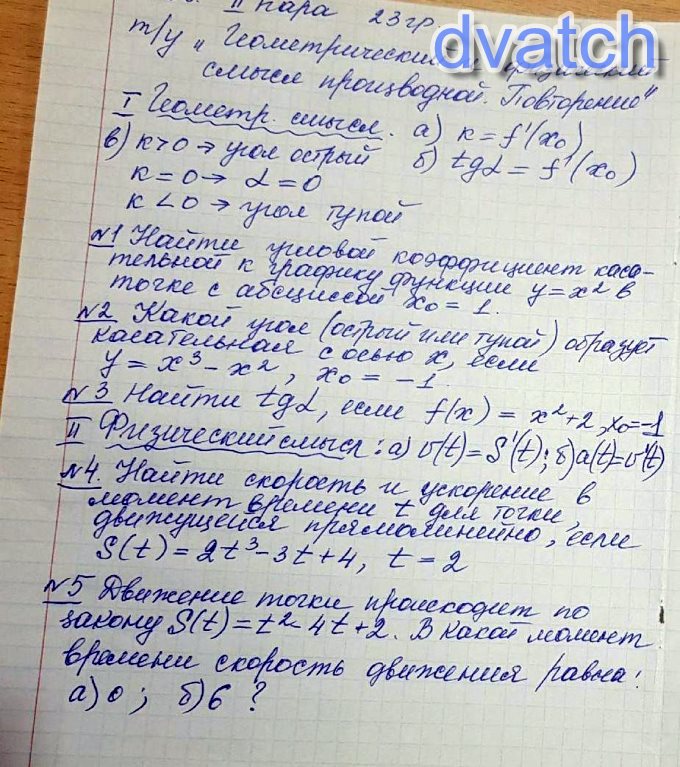 II пара 23 гр.
dvatch
т/у „ Геометрический
смысл производной. Повторение"
I Геометр. смысл. а) к = f'(x₀)
в) к>0 → угол острый б) tgα = f'(x₀)
к = 0 → α = 0
к < 0 → угол тупой
№1 Найти угловой коэффициент каса-
тельной к графику функции y = x² в
точке с абсциссой x₀ = 1.
№2 Какой угол (острый или тупой) образует
касательная с осью x, если
y = x³ - x², x₀ = -1.
№3 Найти tgα, если f(x) = x² + 2, x₀=-1
II Физический смысл: а) υ(t) = S'(t); б) a(t)=υ'(t)
№4. Найти скорость и ускорение в
момент времени t для точки,
движущейся прямолинейно, если
S(t) = 2t³ - 3t + 4, t = 2
№5 Движение точки происходит по
закону S(t) = t² - 4t + 2. В какой момент
времени скорость движения равна:
а) 0 ; б) 6 ?